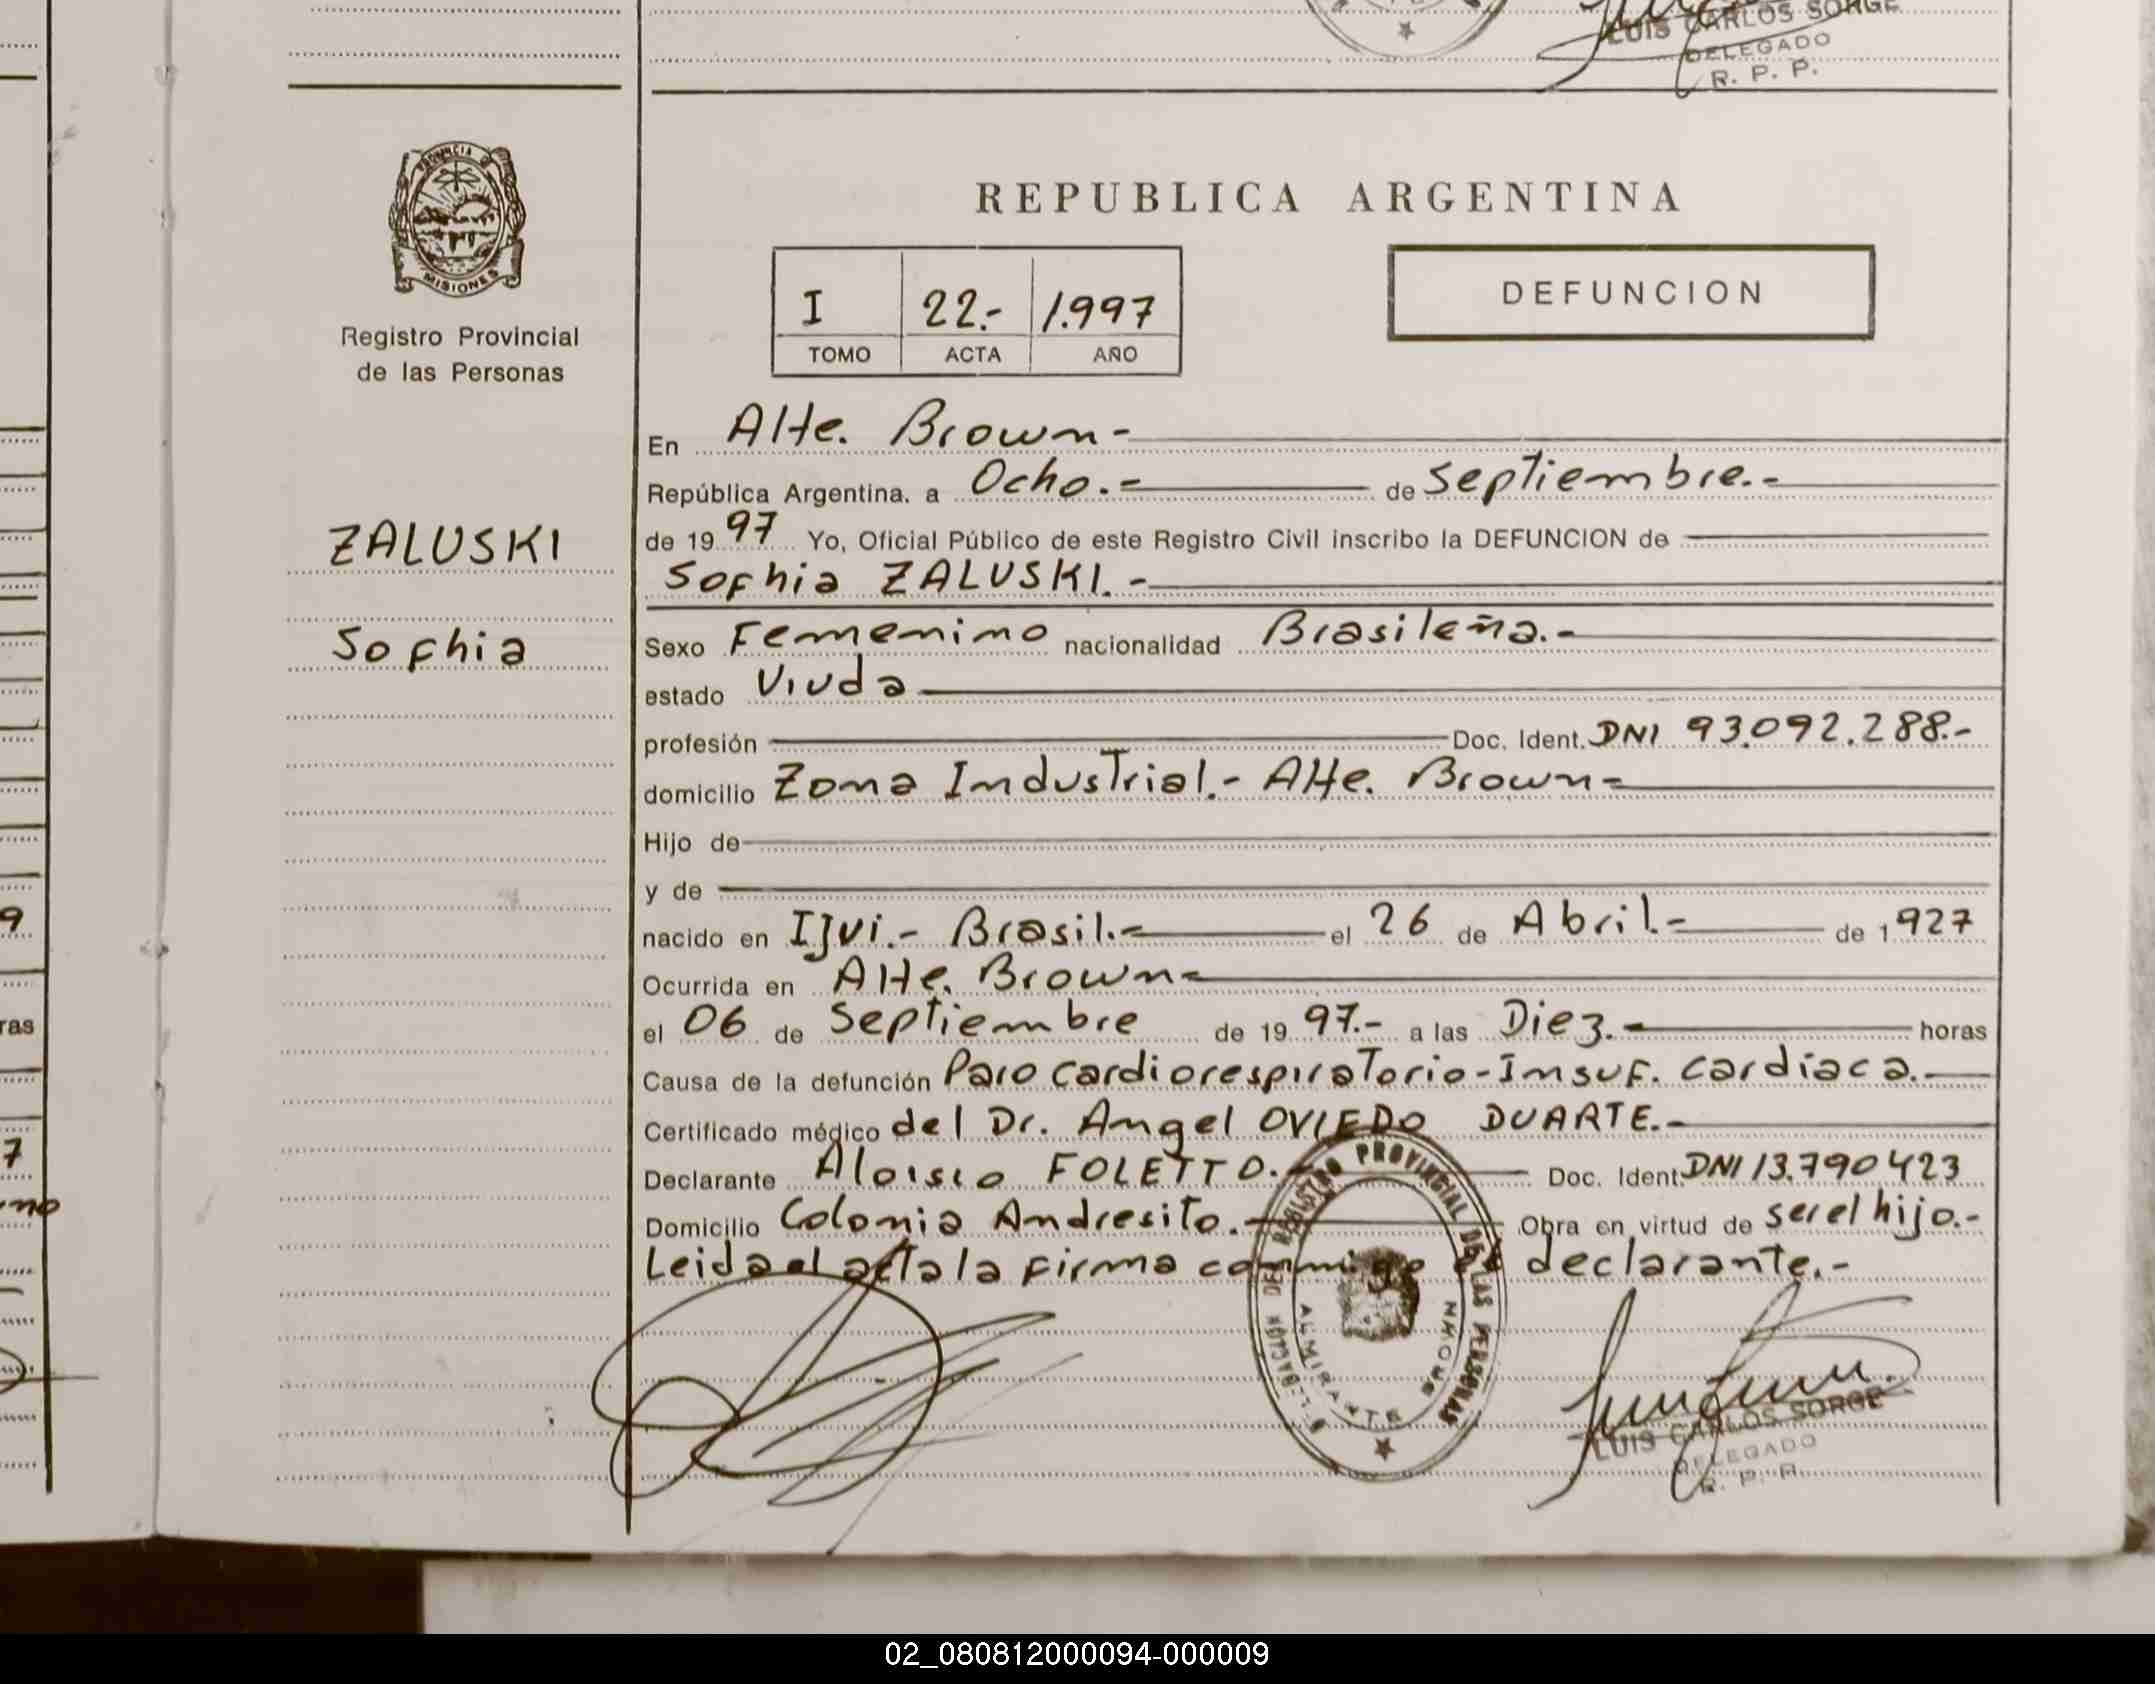 LUIS CARLOS SORGE
DELEGADO
R. P. P.
PROVINCIA DE
MISIONES
Registro Provincial
de las Personas
REPUBLICA ARGENTINA
I 22.- 1.997
TOMO ACTA AÑO
DEFUNCION
ZALUSKI
Sofhia
En Alte. Brown-
República Argentina, a Ocho.- de Septiembre.-
de 1997 Yo, Oficial Público de este Registro Civil inscribo la DEFUNCION de
Sofhia ZALUSKI.-
Sexo Femenino nacionalidad Brasileña.-
estado Viuda
profesión Doc. Ident. DNI 93.092.288.-
domicilio Zona Industrial.- Alte. Brown-
Hijo de
y de
nacido en Ijui.- Brasil.- el 26 de Abril.- de 1927
Ocurrida en Alte. Brown-
el 06 de Septiembre de 1997.- a las Diez.- horas
Causa de la defunción Paro cardiorespiratorio-Insuf. cardíaca.-
Certificado médico del Dr. Angel OVIEDO DUARTE.-
Declarante Aloisio FOLETTO.- Doc. Ident. DNI 13.790423
Domicilio Colonia Andresito.- Obra en virtud de ser el hijo.-
Leida el acta la firma conmigo el declarante.-
DELEGACION DEL REGISTRO PROVINCIAL DE LAS PERSONAS
ALMIRANTE BROWN
LUIS CARLOS SORGE
DELEGADO
R. P. P.
9
ras
7
02_080812000094-000009